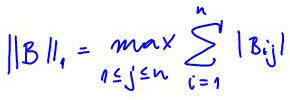 ‖B‖₁ = max_{1≤j≤n} ∑_{i=1}^{n} |B_{ij}|